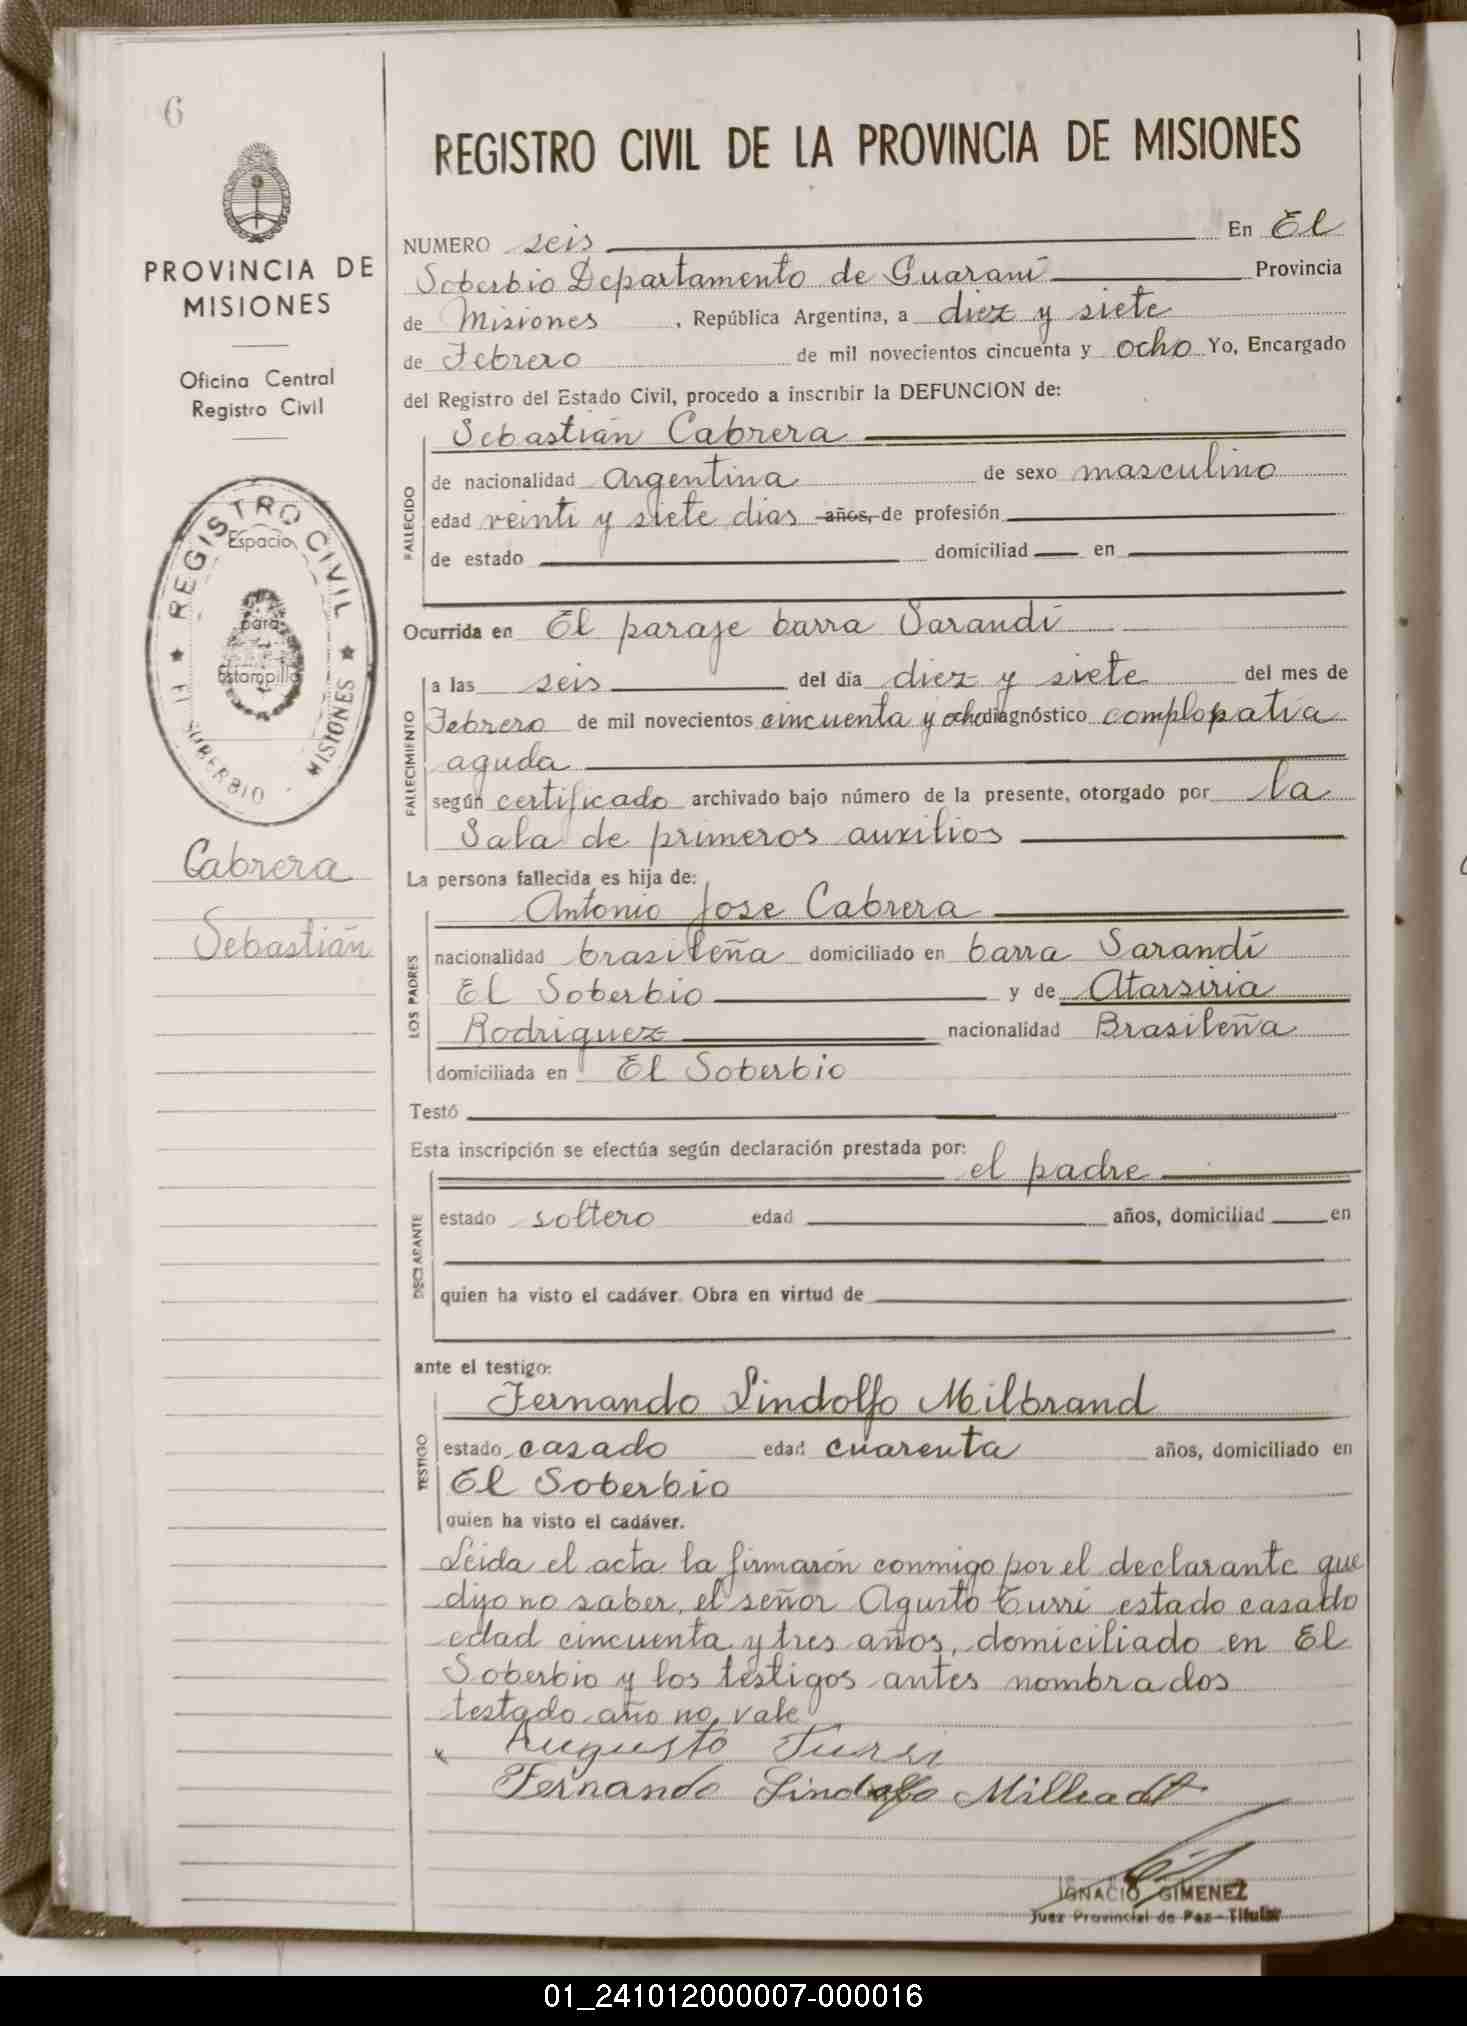 6
PROVINCIA DE
MISIONES
Oficina Central
Registro Civil
REGISTRO CIVIL
Espacio
para
Estampilla
EL SOBERBIO
MISIONES
Cabrera
Sebastián
REGISTRO CIVIL DE LA PROVINCIA DE MISIONES
NUMERO seis En El
Soberbio Departamento de Guaraní Provincia
de Misiones, República Argentina, a diez y siete
de Febrero de mil novecientos cincuenta y ocho Yo, Encargado
del Registro del Estado Civil, procedo a inscribir la DEFUNCION de:
Sebastián Cabrera
FALLECIDO
de nacionalidad Argentina de sexo masculino
edad veinti y siete dias años, de profesión
de estado domiciliad en
Ocurrida en El paraje barra Sarandí
FALLECIMIENTO
a las seis del día diez y siete del mes de
Febrero de mil novecientos cincuenta y ocho diagnóstico complopatía
aguda
según certificado archivado bajo número de la presente, otorgado por la
Sala de primeros auxilios
La persona fallecida es hija de:
Antonio Jose Cabrera
LOS PADRES
nacionalidad brasileña domiciliado en barra Sarandí
El Soberbio y de Atarsiria
Rodriguez nacionalidad Brasileña
domiciliada en El Soberbio
Testó
Esta inscripción se efectúa según declaración prestada por:
el padre
DECLARANTE
estado soltero edad años, domiciliad en
quien ha visto el cadáver. Obra en virtud de
ante el testigo:
Fernando Lindolfo Milbrand
TESTIGO
estado casado edad cuarenta años, domiciliado en
El Soberbio
quien ha visto el cadáver.
Leida el acta la firmarón conmigo por el declarante que
dijo no saber, el señor Agusto Turri estado casado
edad cincuenta y tres años, domiciliado en El
Soberbio y los testigos antes nombrados
testado año no vale
Augusto Turri
Fernando Lindolfo
IGNACIO GIMENEZ
Juez Provincial de Paz - Titular
01_241012000007-000016